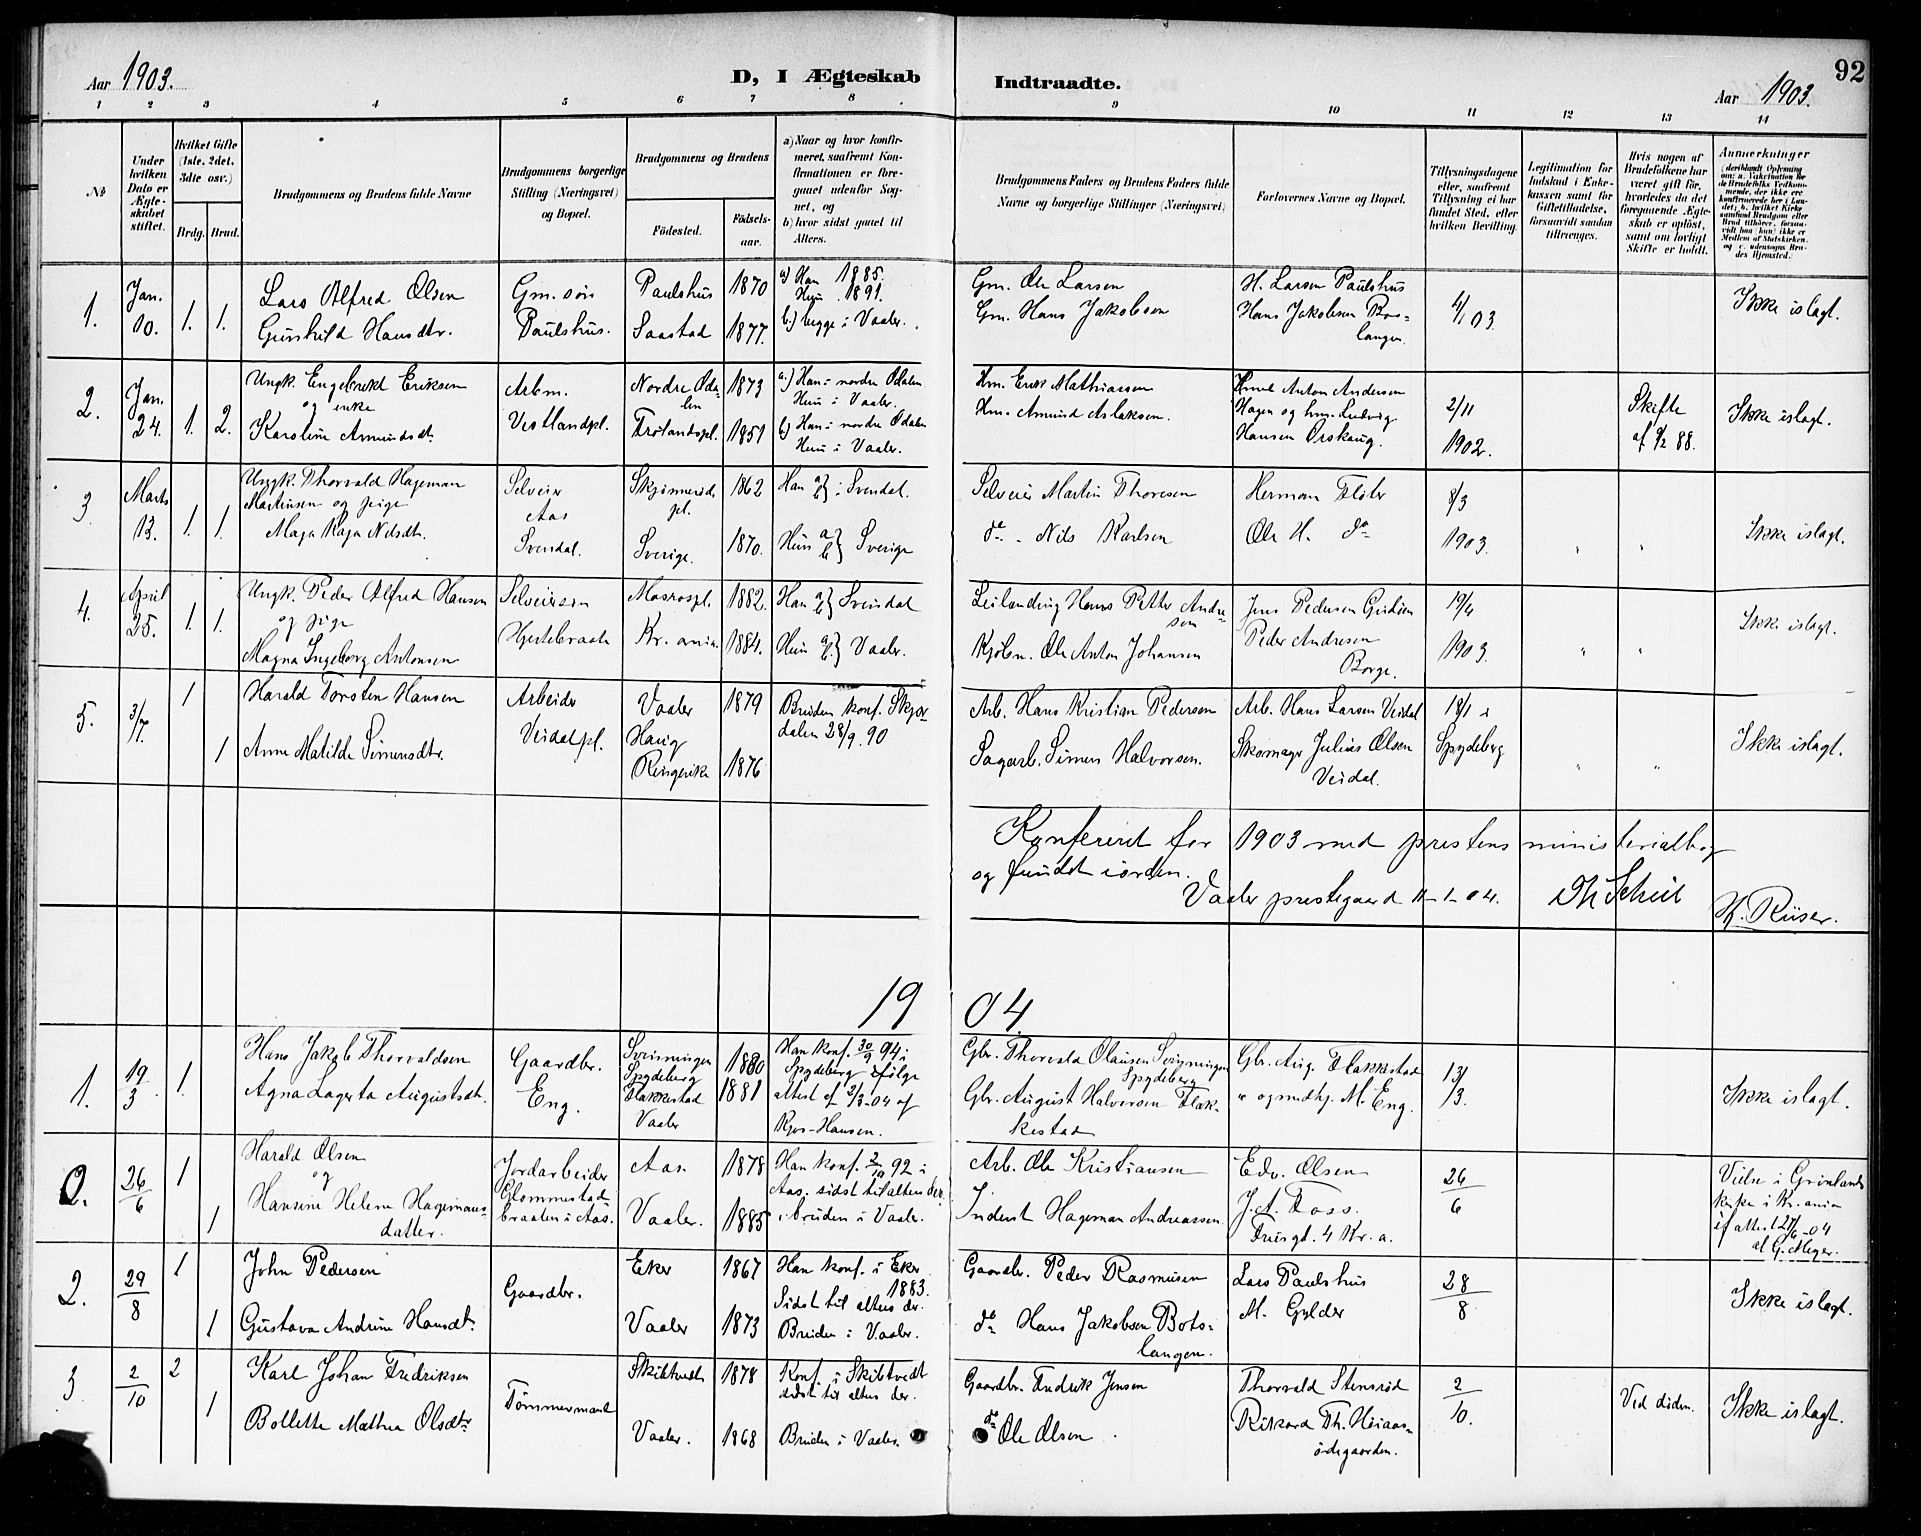 92
Aar 1903.
D, I Ægteskab
Indtraadte.
Aar 1903.
1 2 3 4 5 6 7 8 9 10 11 12 13 14
No
Under hvilken Dato er Ægteskabet stiftet.
Hvilket Gifte (1ste, 2det, 3die osv.)
Brdg. Brud.
Brudgommens og Brudens fulde Navne
Brudgommens borgerlige Stilling (Næringsvei) og Bopæl.
Brudgommens og Brudens
Fødested.
Fødselsaar.
a) Naar og hvor konfirmeret, saafremt Konfirmationen er foregaaet udenfor Sognet, og
b) hvor sidst gaaet til Alters.
Brudgommens Faders og Brudens Faders fulde Navne og borgerlige Stillinger (Næringsvei)
Forlovernes Navne og Bopæl.
Tillysningsdagene eller, saafremt Tillysning ei har fundet Sted, efter hvilken Bevilling.
Legitimation for Indskud i Enkekassen samt for Giftetilladelse, forsaavidt saadan tiltrænges.
Hvis nogen af Brudefolkene har været gift før, hvorledes da det foregaaende Ægteskab er opløst, samt om lovligt Skifte er holdt.
Anmærkninger
1.
Jan. 10.
1. 1.
Lars Alfred Olsen
Gunhild Hansdtr.
Gm. søn
Paulshus.
Paulshus 1870
Saastad 1877.
a) Han 1885.
Hun 1891.
b) begge i Vaaler.
Gm. Ole Larsen
Gm. Hans Jakobsen
H. Larsen Paulshus
Hans Jakobsen Bos-
langen.
4/1 03.
Ikke islagt.
2.
Jan. 24.
1. 2.
Ungk. Engebrekt Eriksen
og enke
Karoline Amundsdt.
Arbm.
Vestlandpl.
Nordre Oda-
len 1873
Frølandspl. 1851
a.) Han i nordre Odalen
Hun i Vaaler.
b) Han i nordre Odalen
Hun i Vaaler.
Hm. Erik Mathiassen
Hm. Amund Aslaksen.
Anton Andersen
Hagen og hm. Ludvig
Hansen Orskaug.
2/11
1902.
Skifte
af 88.
Ikke islagt.
3
Marts 13.
1. 1.
Ungk. Thorvald Hageman
Martinsen og pige
Maja Kaja Nilsdt.
Selveier
Aas
Svendal.
pl. 1862
Sverige. 1870.
Han a b } i Svendal.
Hun a b } Sverige
Selveier Martin Thoresen
do. Nils Karlsen
Herman Fløter
Ole H. do
8/3
1903.
Ikke islagt.
4.
April 25.
1. 1.
Ungk. Peder Alfred Hansen
og pige
Magna Ingeborg Antonsen
Selveiersøn
Mosrospl. 1882.
Kr. ania. 1884.
Han a b } Svendal
Hun a b } Vaaler.
Leilending Hans Petter Andre-
sen
Kjøbm. Ole Anton Johansen
Jens Pedersen
Peder Andresen
Borge.
19/4
1903.
Ikke islagt.
5.
3/7.
1
1
Harald Torsten Hansen
Anne Matilde Simensdtr.
Arbeider
Veidalpl.
Vaaler 1879
Haug
Ringerike 1876
Bruden konf. Skjor-
dalen 28/9. 90
Arb. Hans Kristian Pedersen
Sagarb. Simen Halvorsen.
Arb. Hans Larsen Veidal
Skomager Julius Olsen
Veidal.
18/1 i
Spydeberg
Ikke islagt.
Konfereret for 1903 med prestens ministerialbog
og fundet iorden.
Vaaler prestegaard 11-1-04.
H. Riiser.
1904.
1.
19/3
1.
Hans Jakob Thorvaldsen
Agna Lagerta Augustsdt.
Gaardbr.
Eng.
Spydeberg 1880
Flakkestad 1881
Vaaler
Han konf. 30/9 94 i
Spydeberg ifølge
attest af 2/3-04 af
Kjos-Hansen.
Gbr. Thorvald Olausen
Spydeberg
Gbr. August Halvorsen Flak-
kestad
Gbr. Aug. Flakkestad
M. Eng.
13/3.
Ikke islagt.
2.
26/6
1
1
Harald Olsen
og
Hansine Helene Hagemans-
datter.
Jordarbeider
Glommestad-
braaten i Aas.
Aas. 1878
Vaaler. 1885
Han konf. 2/10 92 i
Aas. sidst til alters der.
bruden i Vaaler.
Arb. Ole Kristiansen
Inderst Hageman Andreassen.
Edv. Olsen
J. A. Foss.
4 Kr. a.
26/6
Vielse i Grønlands
kirke i Kr. ania
if attest 27/6-04
af G. Meyer.
2.
29/8
1
1
John Pedersen
Gustava Andrine Hansdt.
Gaardbr.
Eker 1867
Vaaler 1873
Han konf. i Eker
1883.
Sidst til alters der.
Bruden i Vaaler.
Gaardbr. Peder Rasmussen
do Hans Jakobsen Bots-
langen.
Lars Paulshus
M. Gylder
28/8
Ikke islagt.
3
2/10
2
1
Karl Johan Fredriksen
Bollette Mathea Olsdtr
Tømmermand
Skibtvedt 1878
Vaaler. 1868
Konf. i Skibtvedt
sidst til alters der.
Bruden i Vaaler.
Gaardbr. Fredrik Jensen
do Ole Olsen
Thorvald Stensrød
Rikard Th.
ødegaarden.
2/10.
Ved døden.
Ikke islagt.